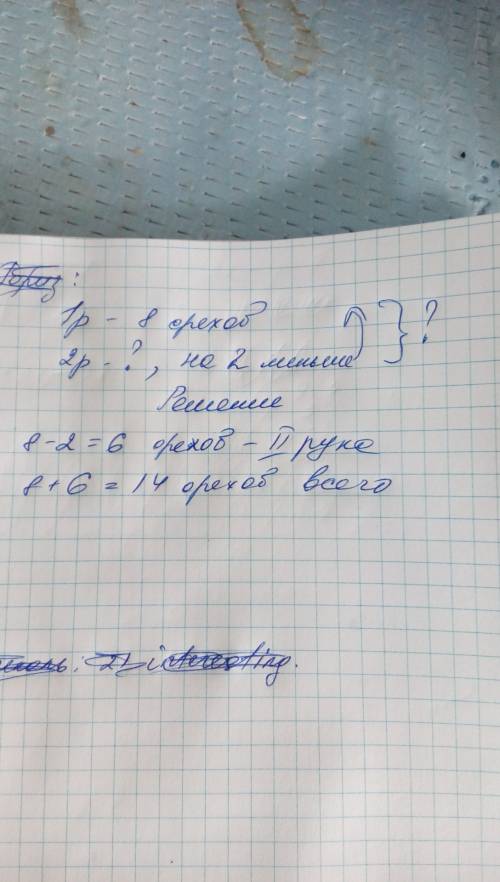 :
1р - 8 орехов
2р - ?, на 2 меньше } ?
Решение
8 - 2 = 6 орехов - II рука
8 + 6 = 14 орехов всего